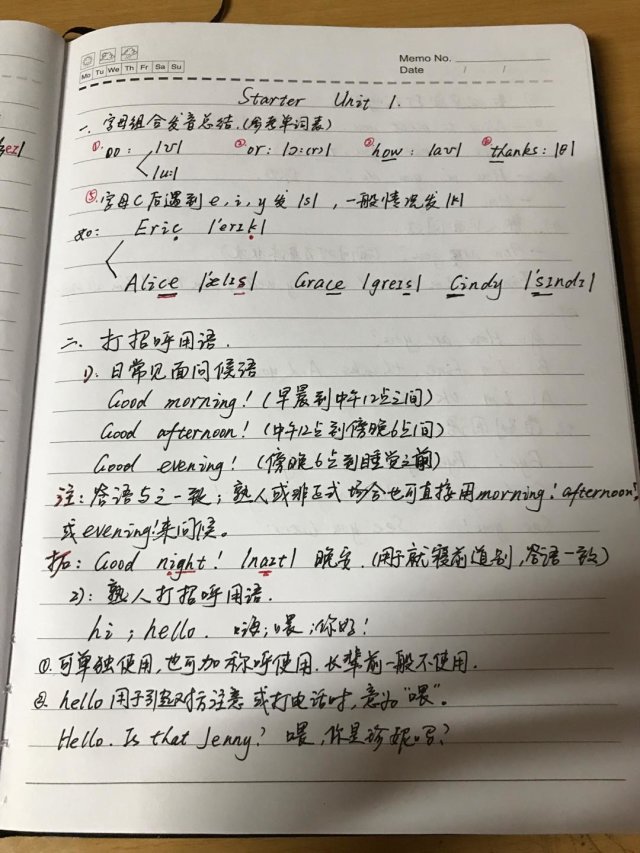 Mo Tu We Th Fr Sa Su
Memo No.
Date / /
Starter Unit 1.
一、字母组合发音总结.(参考单词表)
①oo: |ʊ| ②or: |ɔ:(r)| ③how: |aʊ| ④thanks: |θ|
|u:|
⑤字母C后遇到e,i,y发|s|,一般情况发|k|
如: Eric |'erɪk|
Alice |'ælɪs| Grace |greɪs| Cindy |'sɪndɪ|
二、打招呼用语.
1). 日常见面问候语
Good morning! (早晨到中午12点之间)
Good afternoon! (中午12点到傍晚6点间)
Good evening! (傍晚6点到睡觉之前)
注:答语与之一致;熟人或非正式场合也可直接用morning! afternoon!
或evening!来问候。
拓: Good night! |naɪt| 晚安.(用于就寝前道别,答语一致)
2): 熟人打招呼用语.
hi ; hello. 嗨;喂;你好!
①.可单独使用,也可加称呼使用.长辈前一般不使用.
②. hello用于引起对方注意或打电话时,意为"喂"。
Hello. Is that Jenny? 喂,你是珍妮吗?